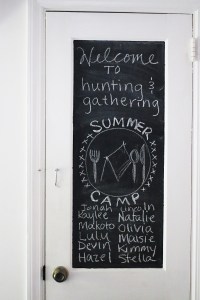 Welcome
TO
hunting &
gathering
SUMMER
CAMP
Jonah Lincoln
Kaylee Natalie
Makoto Olivia
Lulu Maisie
Devin Kimmy
Hazel Stella